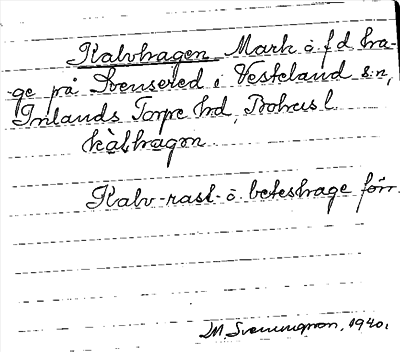 Kalvhagen Mark å f d ha-
ge på Svensered i Västerland s:n,
Inlands Torpe hd, Bohusl.
kàlhagọn
Kalv-rast- o. beteshage förr.
M Svenungson, 1940.